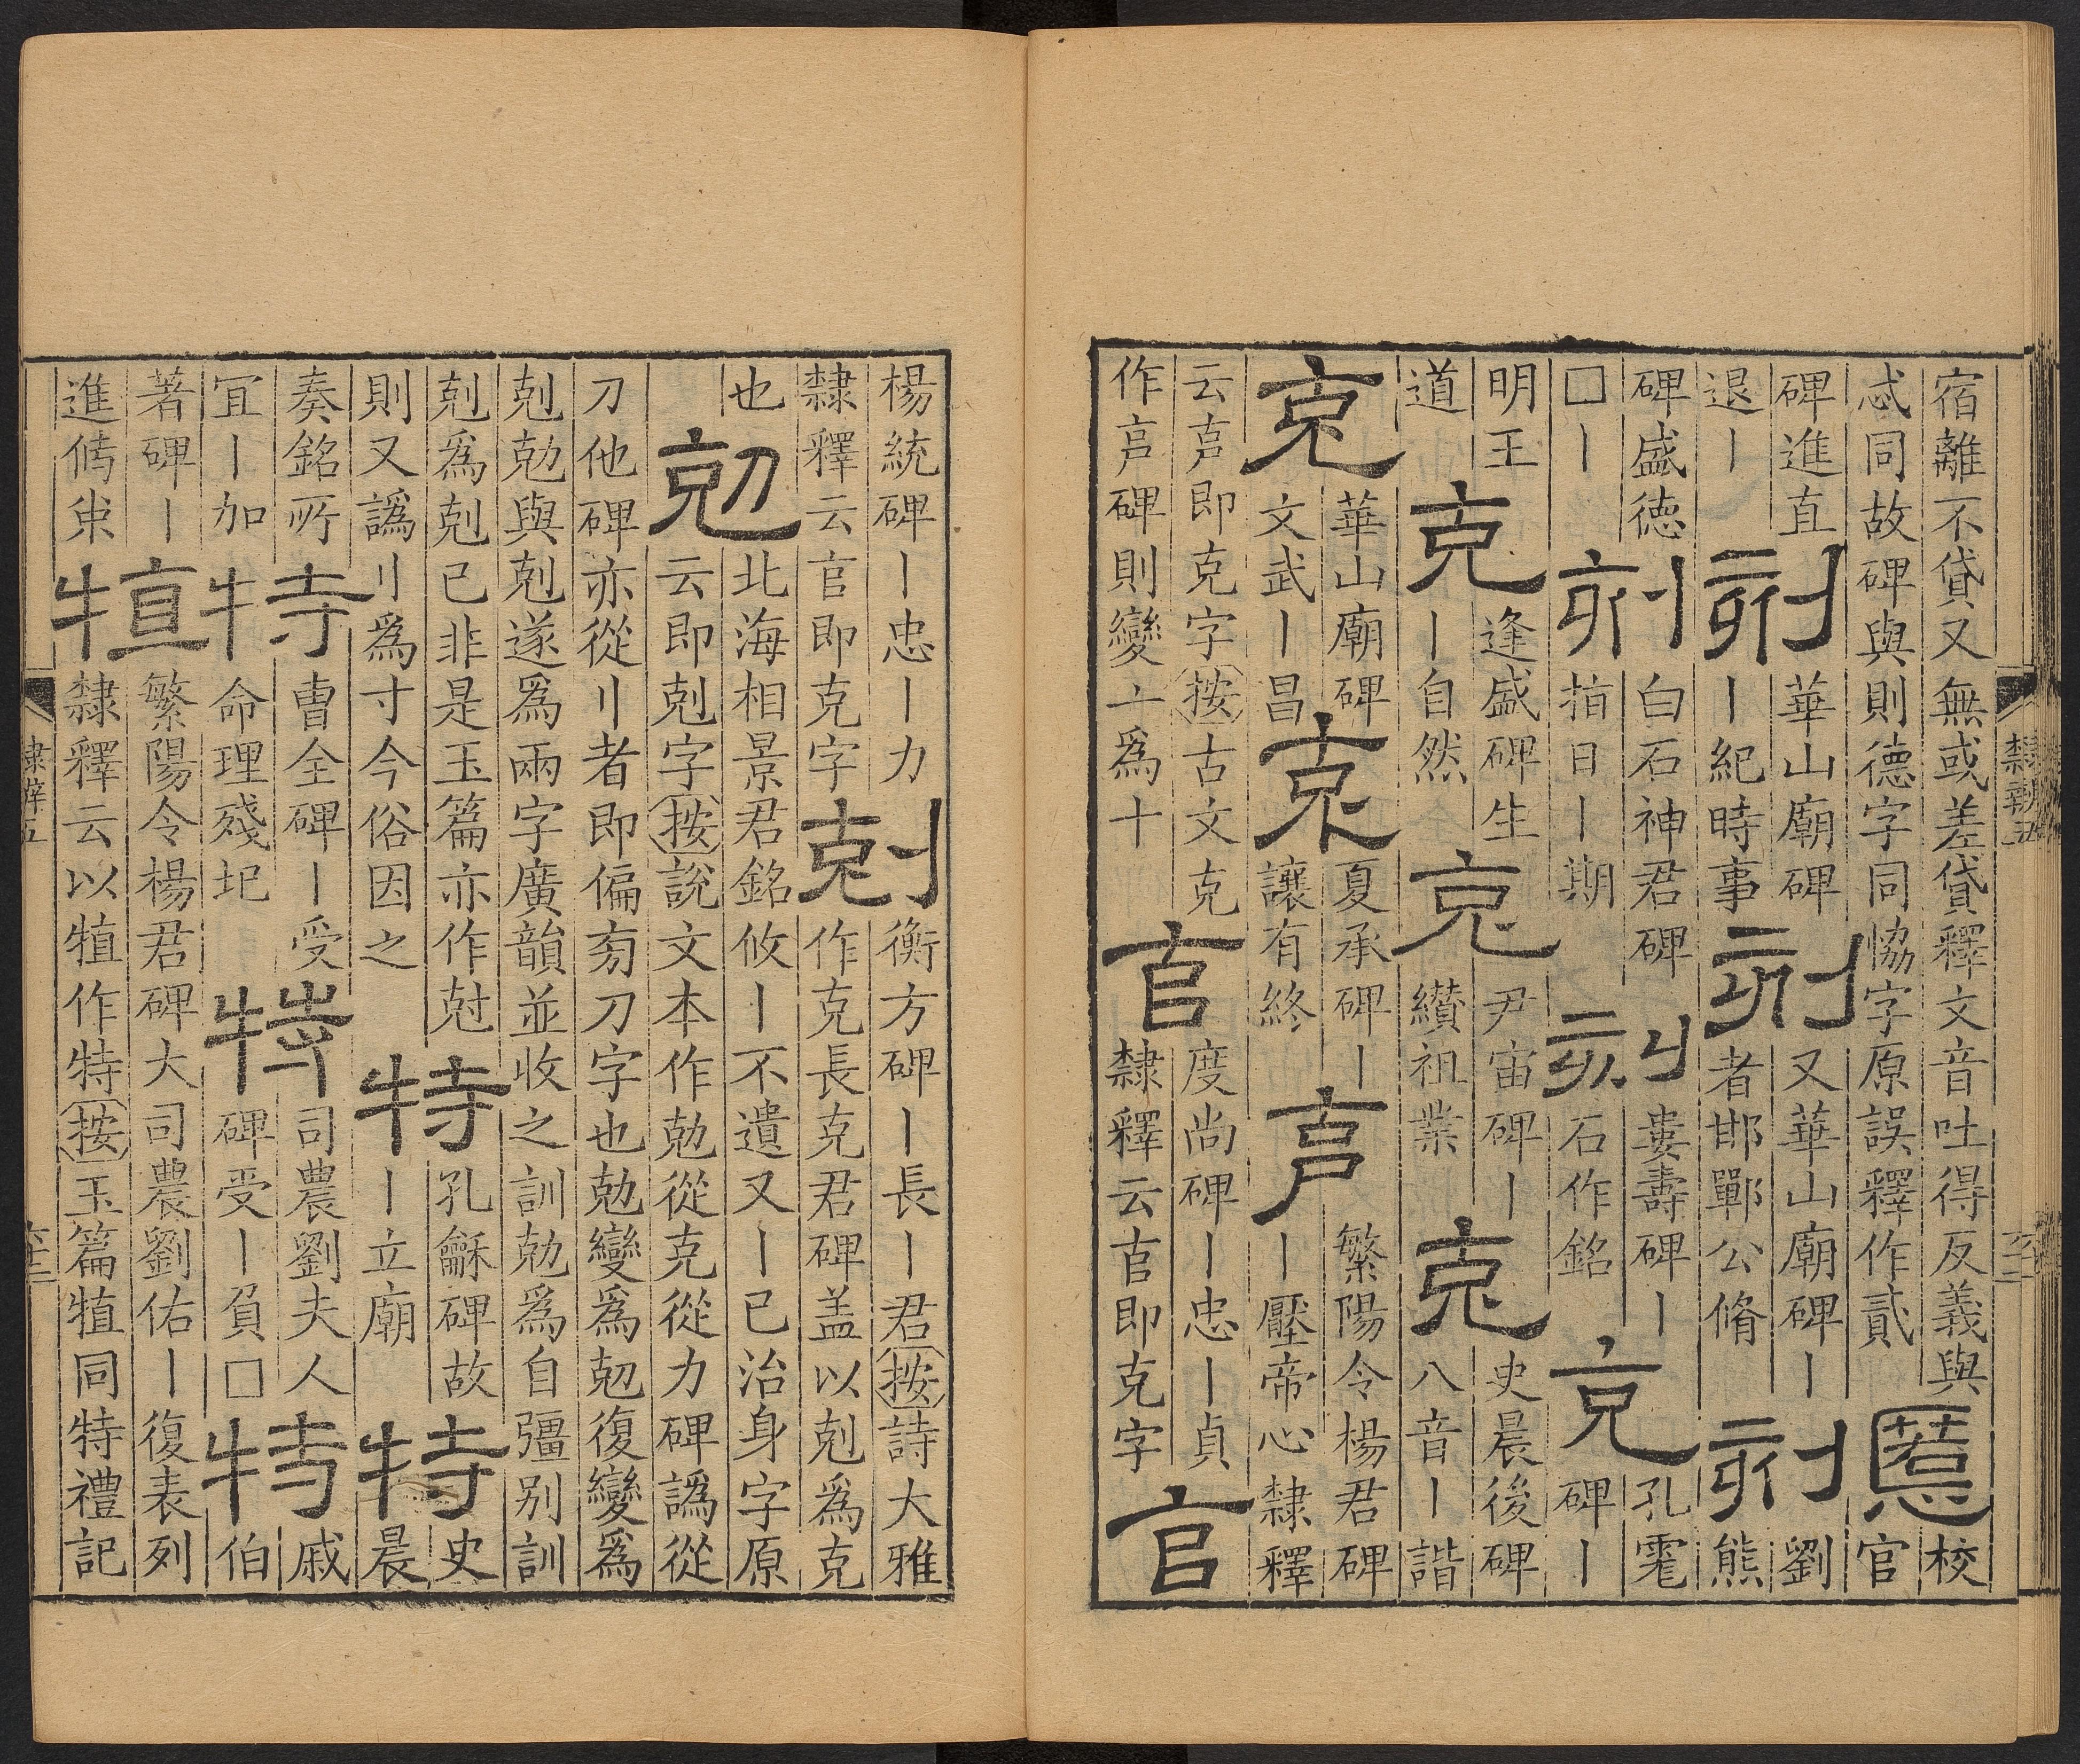 宿離不貸又無或差貸釋文音吐得反義與
忒同故碑與則德字同恊字原誤釋作貳
慝
校
官
碑進直
退丨
刻
華山廟碑
丨紀時事
刻
又華山廟碑丨
者邯鄲公脩
刻
劉
熊
碑盛德
□丨
刻
白石神君碑
指日丨期
刻
婁壽碑丨
石作銘
克
孔
碑丨
明王
道
克
逢盛碑生
丨自然
克
尹宙碑丨
纉祖業
克
史晨後碑
八音丨諧
克
華山廟碑
文武丨昌
克
夏承碑丨
讓有終
繁陽令楊君碑
丨壓帝心隸釋
云即克字按古文克
作碑則變亠爲十
官
度尚碑丨忠丨貞
隸釋云官即克字
官
隸辨五
六十二
楊統碑丨忠丨力
隸釋云官即克字
剋
衡方碑丨長丨君按詩大雅
作克長克君碑盖以剋爲克
也
北海相景君銘攸丨不遺又丨已治身字原
勊
云即剋字按說文本作勊從克從力碑譌從
刀他碑亦從刂者即偏旁刀字也勊變爲勊復變爲
剋勊與剋遂爲兩字廣韻並收之訓勊爲自彊别訓
剋爲剋己非是玉篇亦作尅
則又譌刂爲寸今俗因之
特
孔龢碑故
丨立廟
特
史
晨
奏銘所
宜丨加
特
曹全碑丨受
命理殘圮
特
司農劉夫人
碑受丨負□
特
戚
伯
著碑丨
進儁朿
犆
繁陽令楊君碑大司農劉佑丨復表列
隸釋云以犆作特按玉篇犆同特禮記
隸辨五
六十二